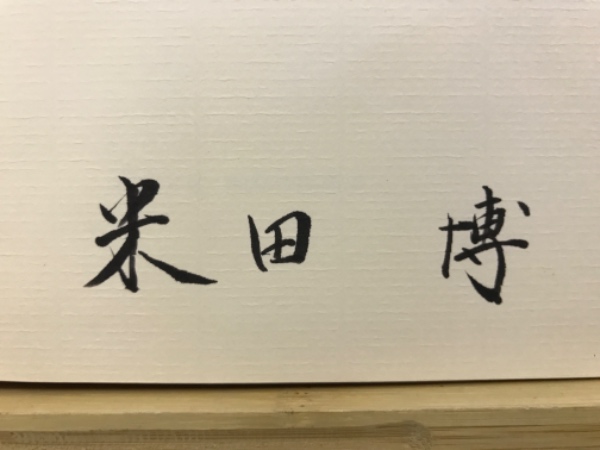 米田 博